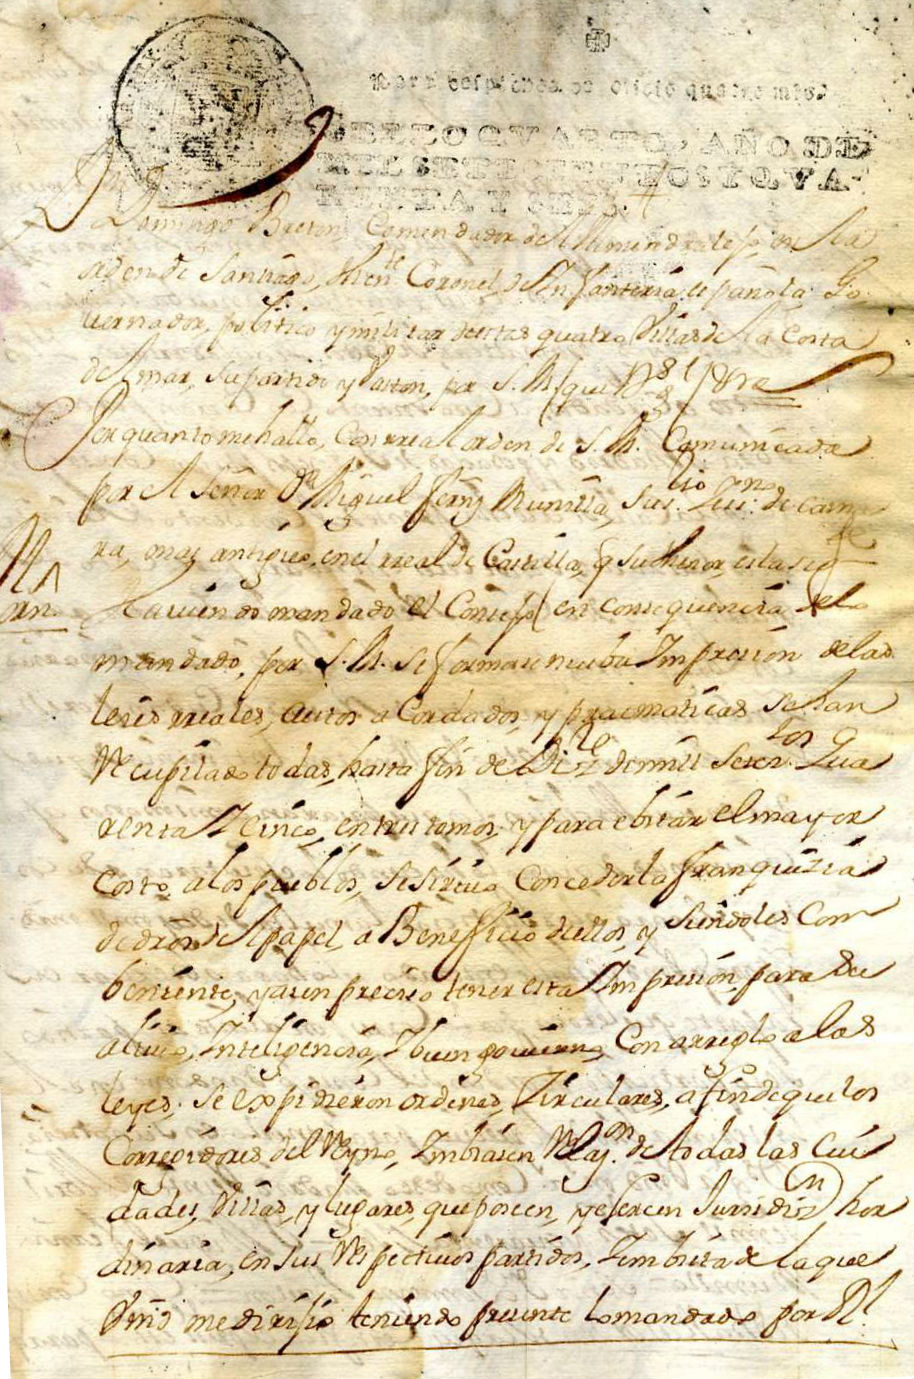 Para despachos de oficio quatro mrs.
SELLO QVARTO, AÑO DE
MIL SETECIENTOS Y QVA-
RENTA Y SEIS.
Dn Domingo Bretón, Comendador de Almendralejo, en la
orden de Santiago, thente Coronel de Infantería española Go
vernador, político y militar destas quatro Villas de la Costa
de la mar, su partido y Baston, por S. M. que Ds ge &a
Por quanto me hallo, con rreal orden de S. M. Comunicada
por el Señor Dn Miguel Fernz Munilla, su srio Zno de cama
ra, mas antiguo, en el rreal de Castilla, q su thenor, es la sigte
Orn Haviendo mandado el Consejo en consequencia de lo
mandado, por S. M. se formase nueba Impresion de las
leies rreales, autos aCordados, y pracmáticas se han
Recupilado todas, hasta fin de Dizre de mill setectos Qua
renta Z cinco, en tres tomos, y para ebitar el mayor
costo, a los pueblos, se sirvió Conceder la franquizia
de drõs del papel, a Benefficio de ellos, y siendoles Com
beniente, y aun preciso tener esta Impresion para su
alivio, Inteligencia, Z buen govierno, Con arreglo a las
leyes, se expidieron ordenes, Zirculares, a fin de que los
Corregidores del Reyno, Imbiasen Razon de todas las Ciu
dades, Villas, y lugares, que poseen, y ejercen Jurisdizn hor
dinaria, en sus Respectivos partidos, Z en vista de la que
Vmd me dirijio teniendo presente lo mandado por el